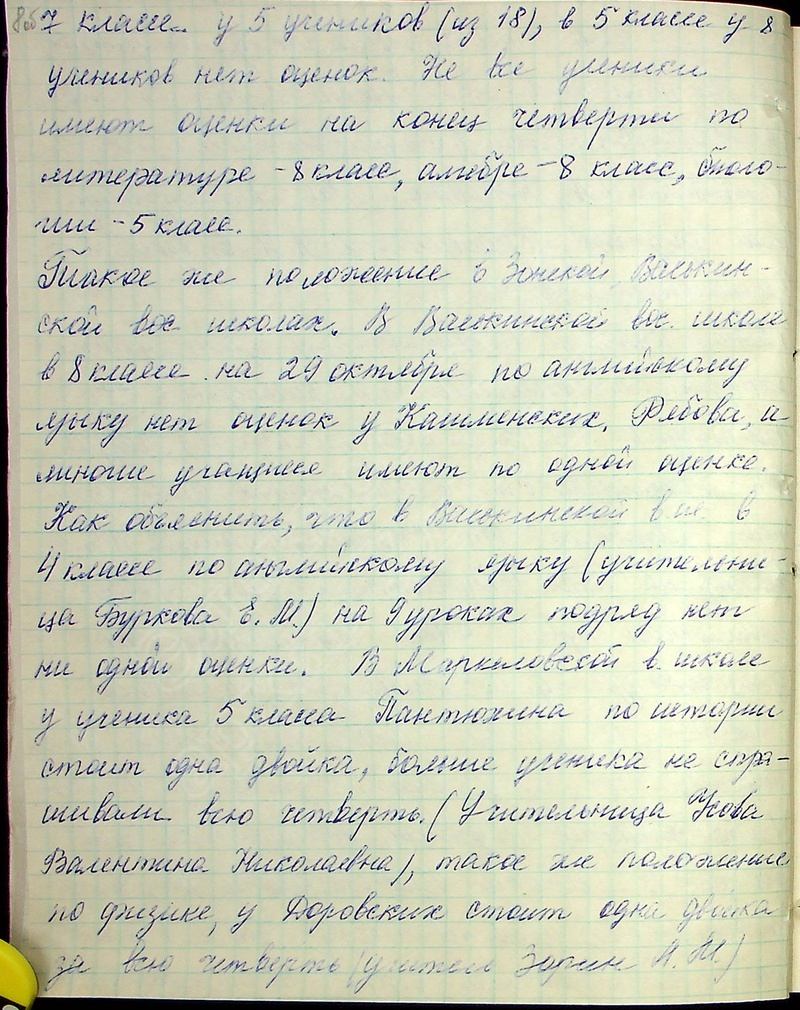 7 классе у 5 учеников (из 18), в 5 классе у 8
учеников нет оценок. Не все ученики
имеют оценки на конец четверти по
литературе - 8 класс, алгебре - 8 класс, биоло-
гии - 5 класс.
Такое же положение в Зонской, Васькин-
ской вос. школах. В Васькинской вос. школе
в 8 классе на 29 октября по английскому
языку нет оценок у Кашменских, Рябова, а
многие учащиеся имеют по одной оценке.
Как объяснить, что в Васькинской в. ш. в
4 классе по английскому языку (учительни-
ца Буркова Е. М.) на 9 уроках подряд нет
ни одной оценки. В Маркеловской в. школе
у ученика 5 класса Пантюхина по истории
стоит одна двойка, больше ученика не спра-
шивали всю четверть. (Учительница Усова
Валентина Николаевна), такое же положение
по физике, у Доровских стоит одна двойка
за всю четверть (учитель Зорин А. М.)